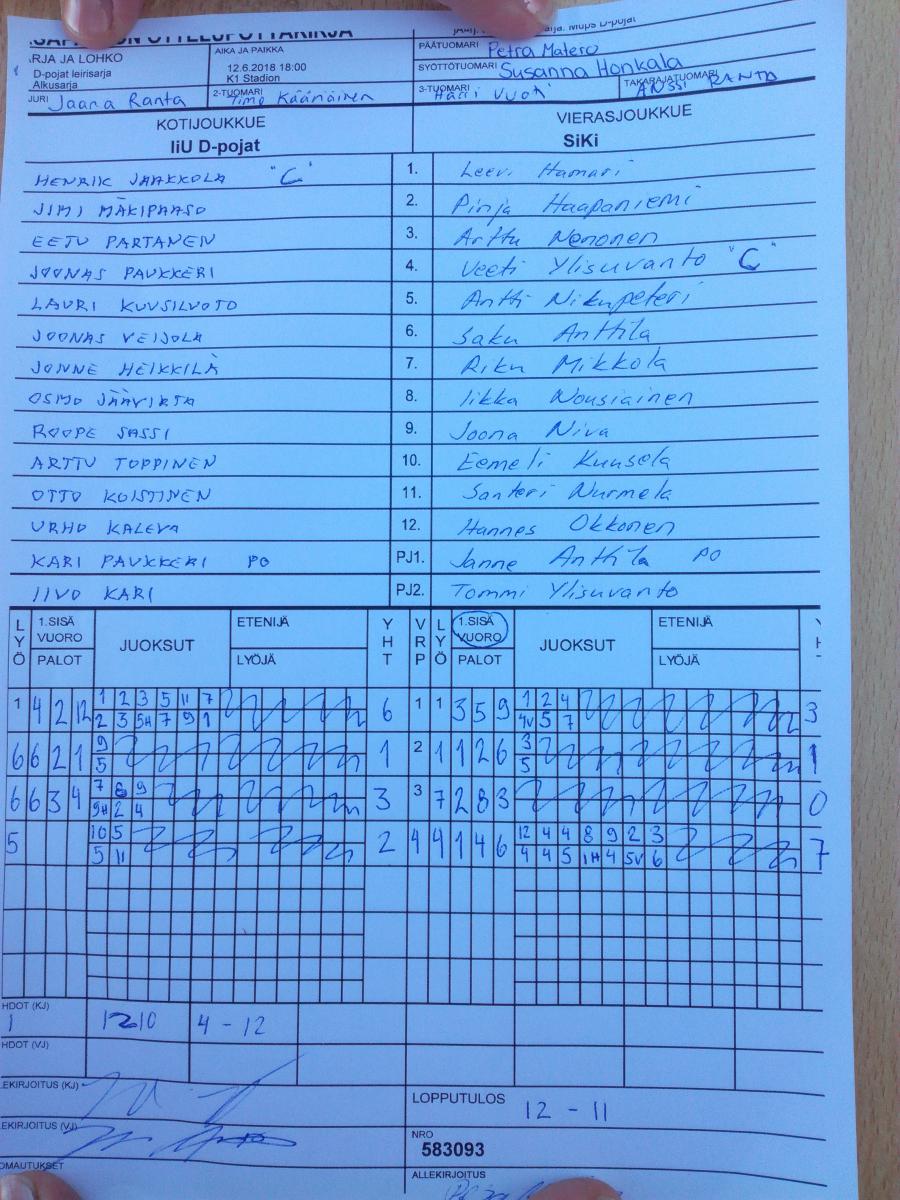 OTTELUPÖYTÄKIRJA
D-pojat
ARJA JA LOHKO
D-pojat leirisarja
Alkusarja
AIKA JA PAIKKA
12.6.2018 18:00
K1 Stadion
PÄÄTUOMARI Petra Matero
SYÖTTÖTUOMARI Susanna Honkala
JURI Jaana Ranta
2-TUOMARI Timo Käänäinen
3-TUOMARI Harri Vuoti
TAKARAJATUOMARI ANSSI RANTA
KOTIJOUKKUE VIERASJOUKKUE
IiU D-pojat SiKi
HENRIK JAAKKOLA "C" 1. Leevi Hamari
JIMI MÄKIPAASO 2. Pinja Haapaniemi
EETU PARTANEN 3. Arttu Nenonen
JOONAS PAUKKERI 4. Veeti Ylisuvanto "C"
LAURI KUUSILUOTO 5. Antti Nikupeteri
JOONAS VEIJOLA 6. Saku Anttila
JONNE HEIKKILÄ 7. Riku Mikkola
OSMO JÄÄVIRTA 8. Iikka Nousiainen
ROOPE SASSI 9. Joona Niva
ARTTU TOPPINEN 10. Eemeli Kuusela
OTTO KOISTINEN 11. Santeri Nurmela
URHO KALEVA 12. Hannes Okkonen
KARI PAUKKERI PO PJ1. Janne Anttila PO
IIVO KARI PJ2. Tommi Ylisuvanto
LYÖ 1.SISÄ VUORO PALOT JUOKSUT ETENIJÄ LYÖJÄ YHT VRP LYÖ 1.SISÄ VUORO PALOT JUOKSUT ETENIJÄ LYÖJÄ YHT
1 2 3 5 11 7 1 2 4
1 4 2 12 6 1 1 3 5 9 3
2 3 5H 7 9 1 4V 5 7
9 3
6 6 2 1 1 2 1 1 2 6 1
5 5
7 8 9
6 6 3 4 3 3 7 2 8 3 0
9H 2 4
10 5 12 4 4 8 9 2 3
5 2 4 4 1 4 6 7
5 11 4 4 5 1H 4 5V 6
HDOT (KJ)
1 1210 4 - 12
HDOT (VJ)
EKIRJOITUS (KJ)
LOPPUTULOS 12 - 11
EKIRJOITUS (VJ)
NRO
583093
OMAUTUKSET
ALLEKIRJOITUS